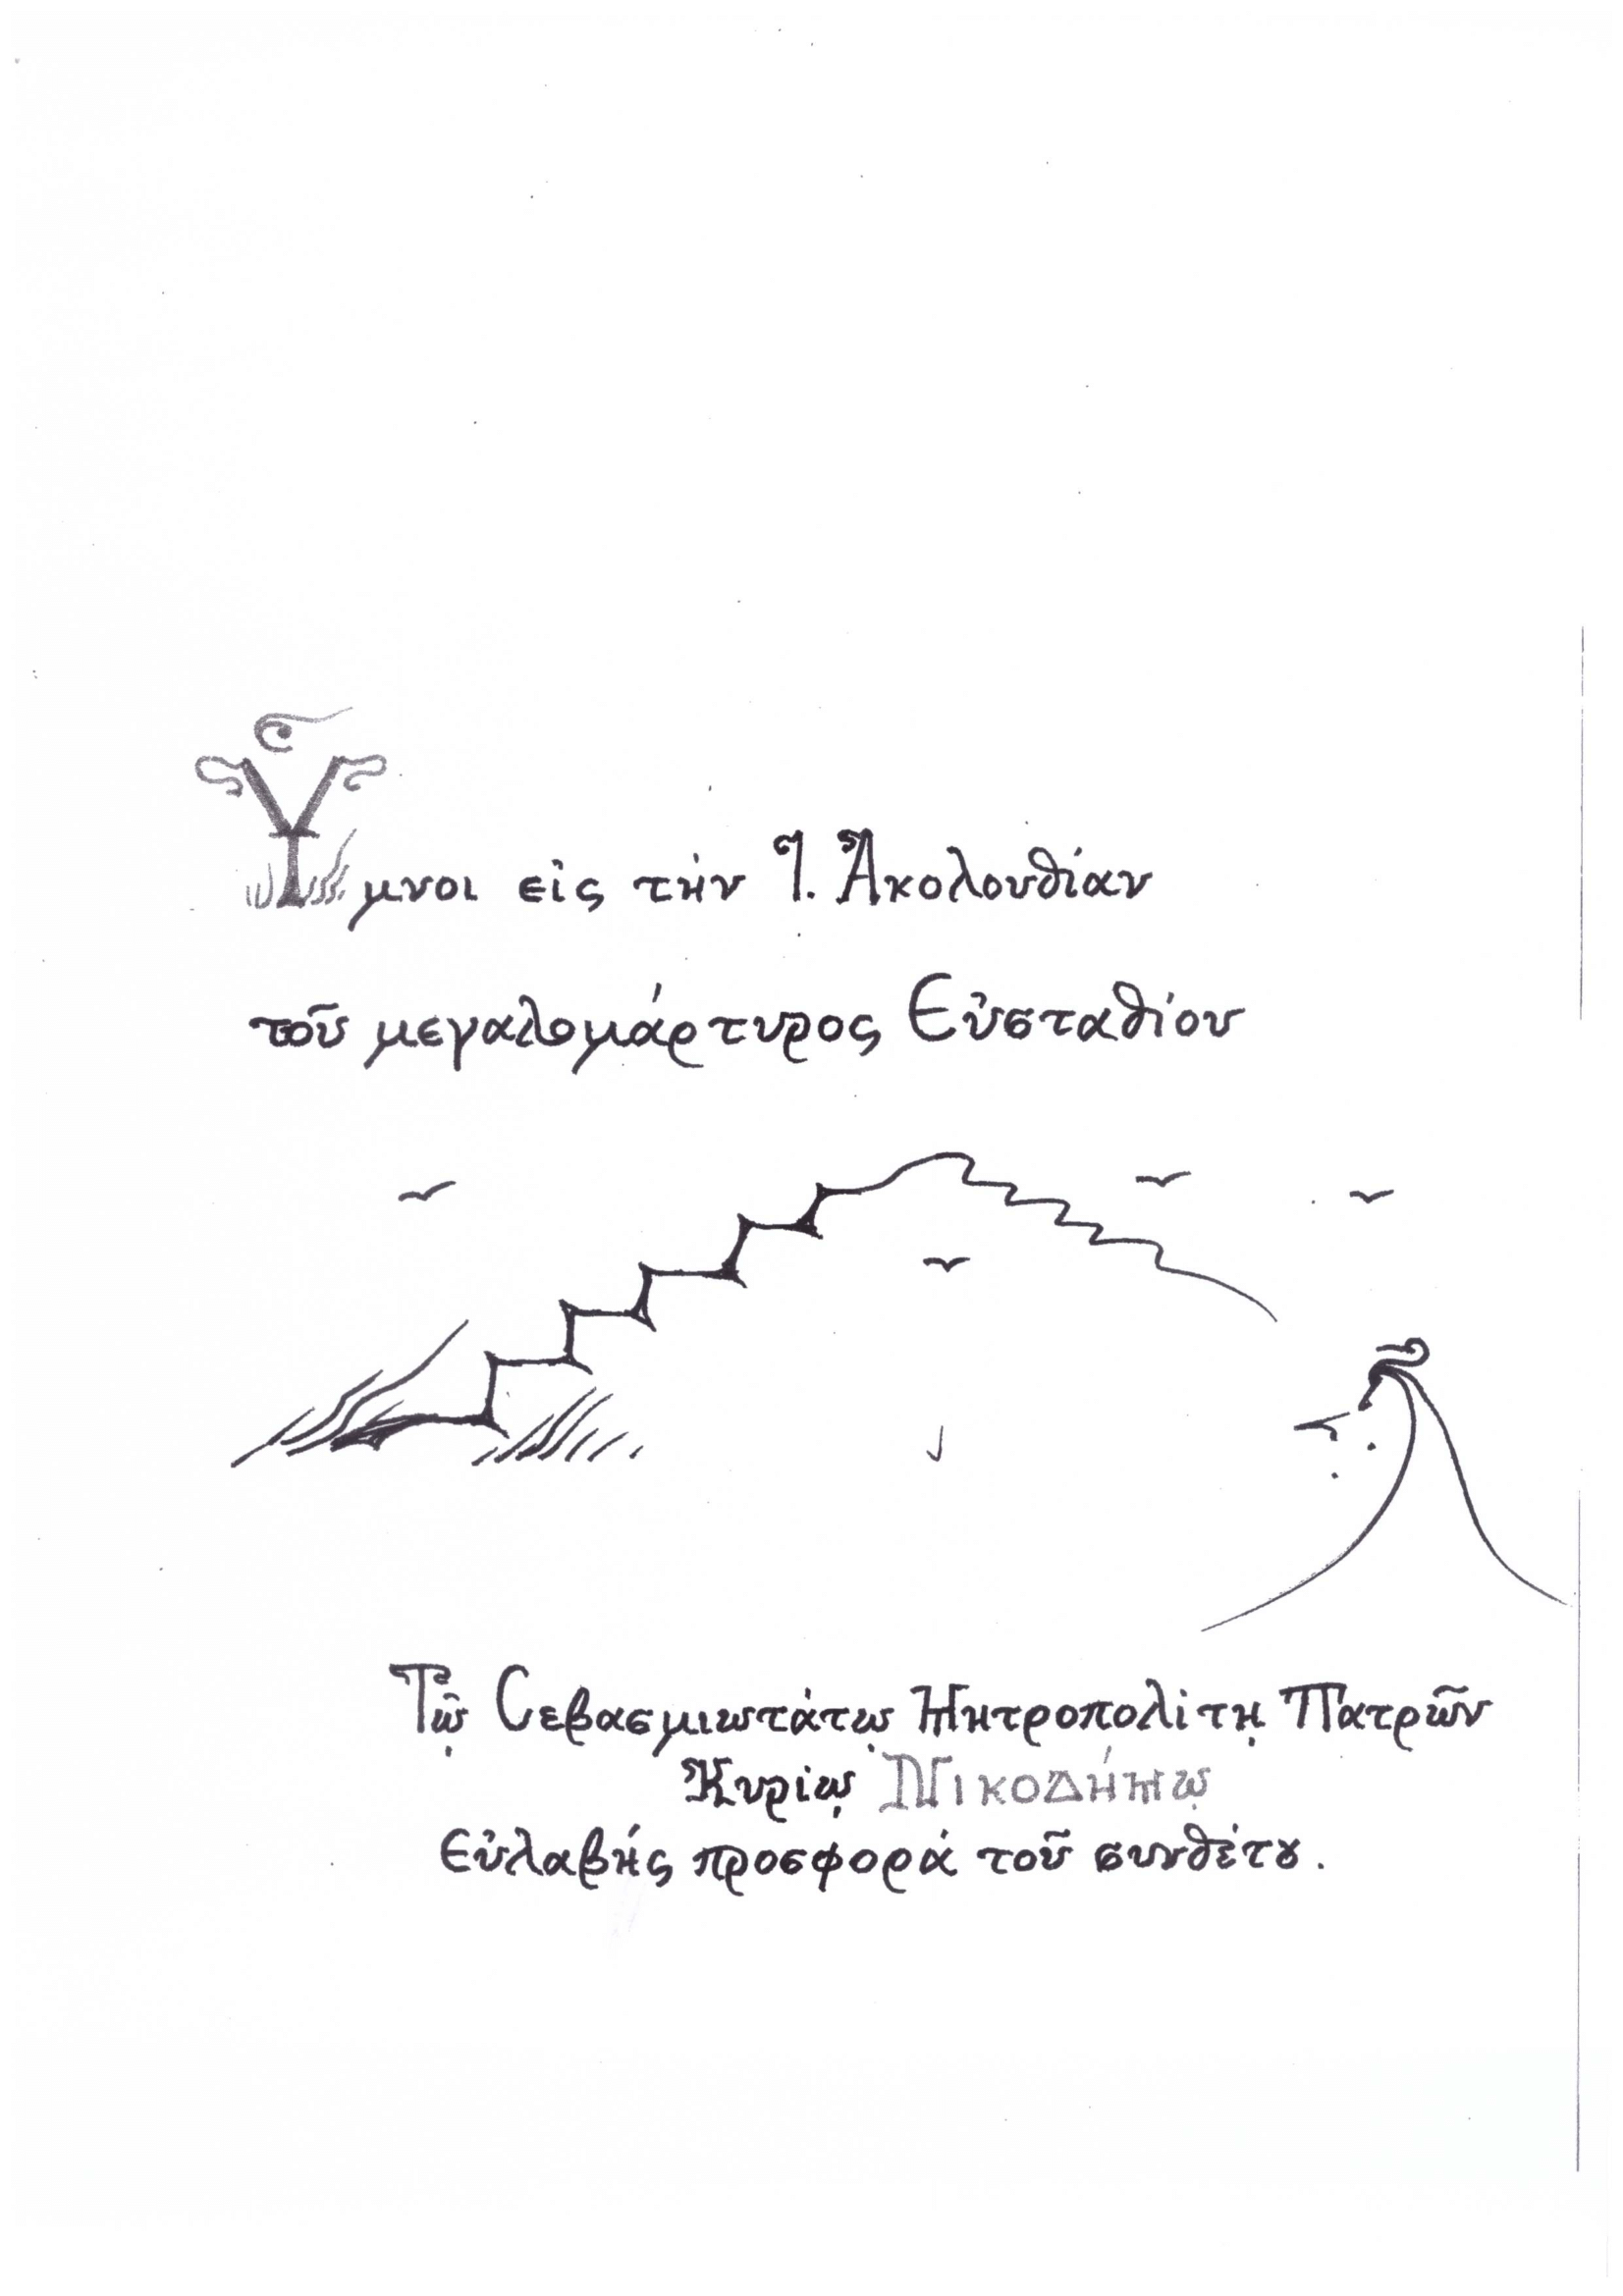 Ὕμνοι εἰς τὴν Ἱ. Ἀκολουθίαν
τοῦ μεγαλομάρτυρος Εὐσταθίου
Τῷ Σεβασμιωτάτῳ Μητροπολίτῃ Πατρῶν
Κυρίῳ Νικοδήμῳ
Εὐλαβής προσφορά τοῦ συνθέτȣ.